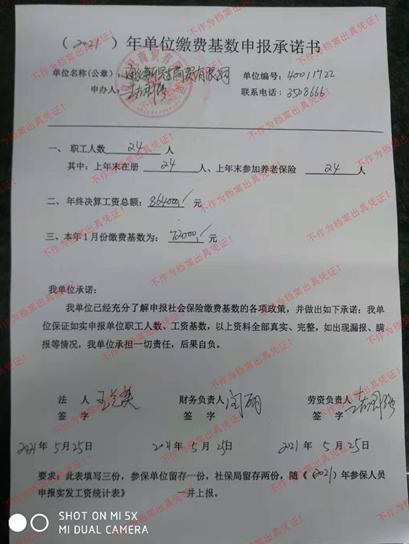 （2021）年单位缴费基数申报承诺书
单位名称(公章)： 商贸有限公司 单位编号：40011722
申办人： 联系电话：3508666
一、 职工人数 24 人
其中：上年末在册 24 人、上年末参加养老保险 24 人
二、年终决算工资总额：864000 元
三、本年1月份缴费基数为：72000 元
我单位承诺：
我单位已经充分了解申报社会保险缴费基数的各项政策，并做出如下承诺：我单
位保证如实申报单位职工人数、工资基数，以上资料全部真实、完整，如出现漏报、瞒
报等情况，我单位承担一切责任，后果自负。
法 人 财务负责人 劳资负责人
签 字 签 字 签 字
2021年5月25日 2021年5月25日 2021年5月25日
要求：此表填写三份，参保单位留存一份，社保局留存两份，随《（2021）年参保人员
申报实发工资统计表》 一并上报。
不作为档案出具凭证！
SHOT ON MI 5X
MI DUAL CAMERA